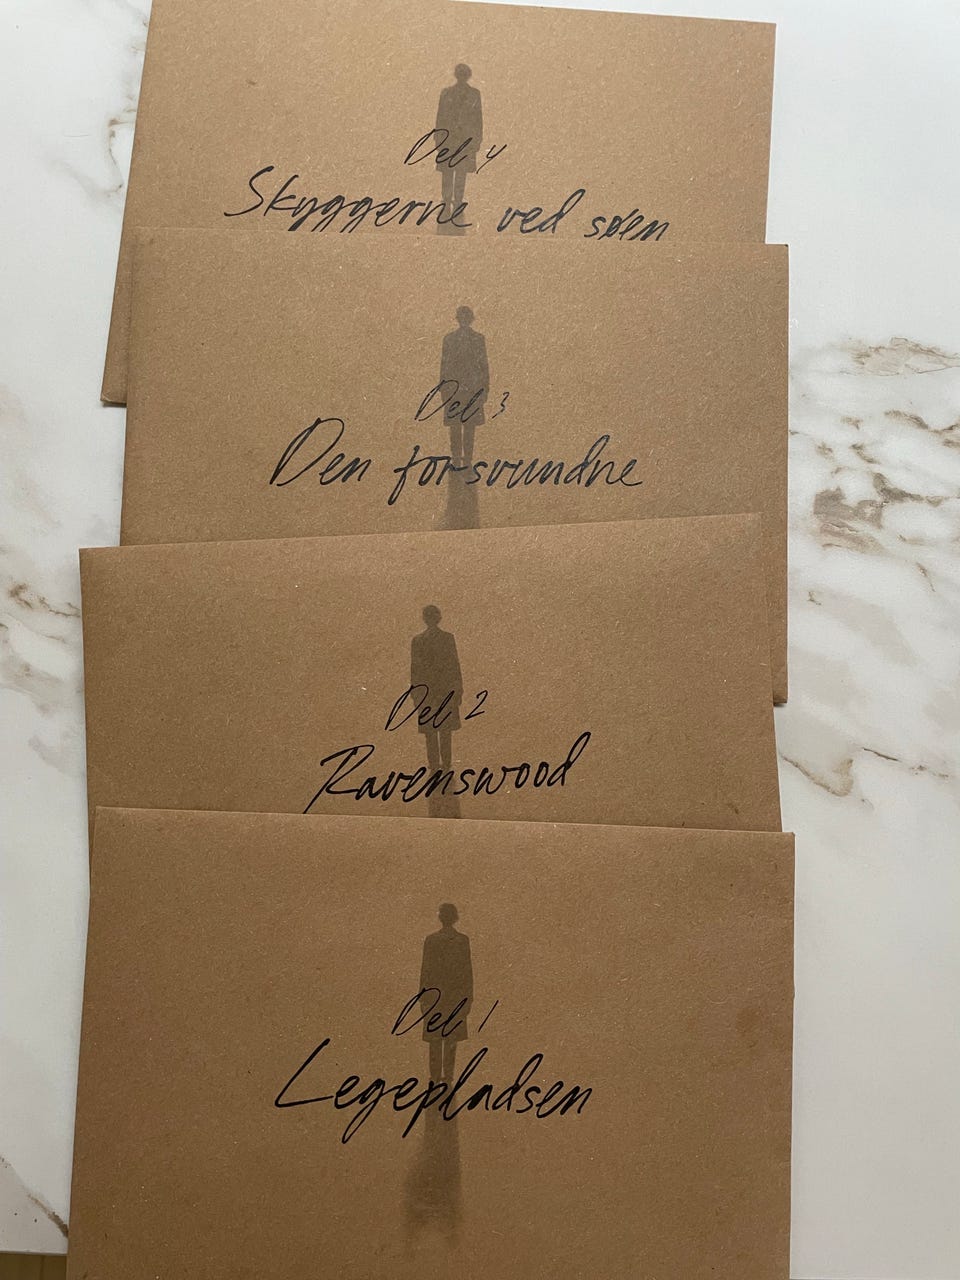 Del 4
Skyggerne ved søen
Del 3
Den forsvundne
Del 2
Ravenswood
Del 1
Legepladsen